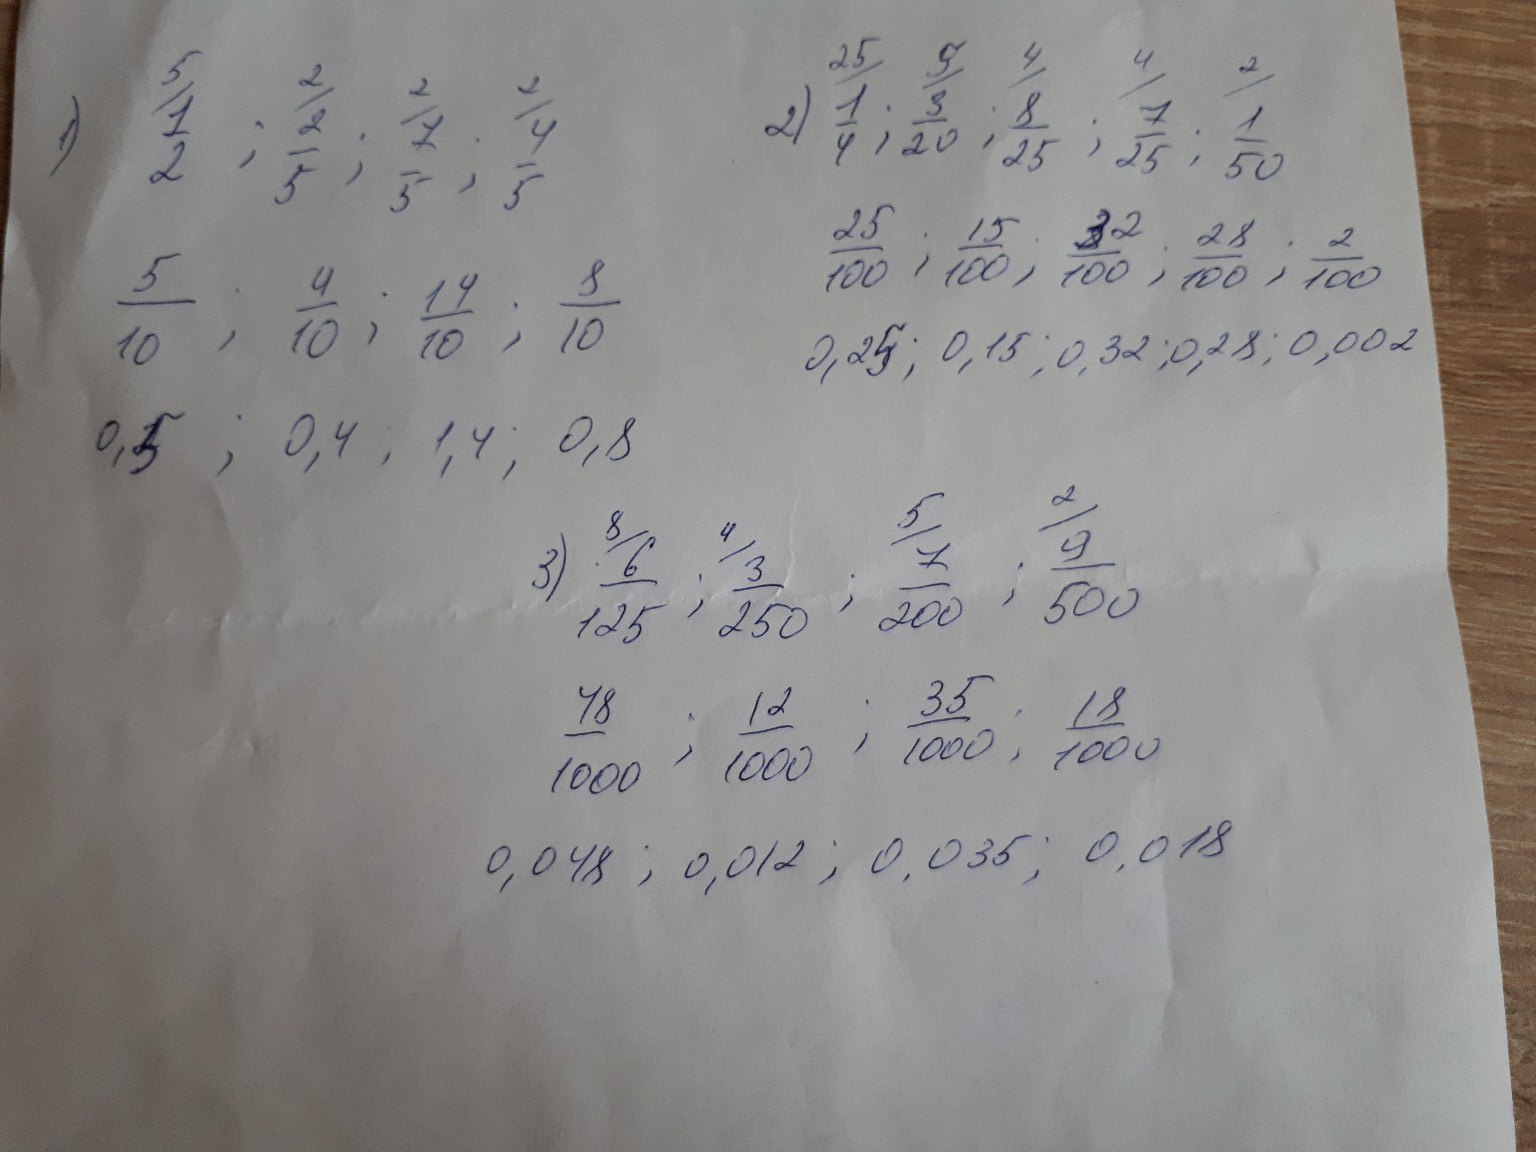 1) 5/ 1/2 ; 2/ 2/5 ; 2/ 7/5 ; 2/ 4/5
5/10 ; 4/10 ; 14/10 ; 8/10
0,5 ; 0,4 ; 1,4 ; 0,8
2) 25/ 1/4 ; 5/ 3/20 ; 4/ 8/25 ; 4/ 7/25 ; 2/ 1/50
25/100 ; 15/100 ; 32/100 ; 28/100 ; 2/100
0,25 ; 0,15 ; 0,32 ; 0,28 ; 0,002
3) 8/ 6/125 ; 4/ 3/250 ; 5/ 7/200 ; 2/ 9/500
48/1000 ; 12/1000 ; 35/1000 ; 18/1000
0,048 ; 0,012 ; 0,035 ; 0,018